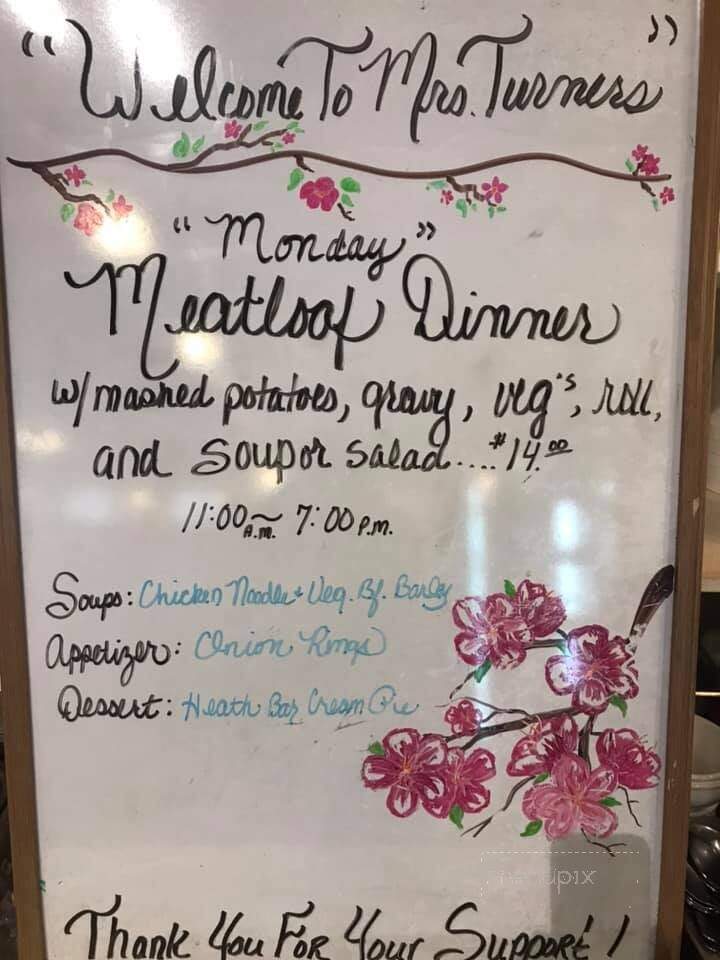 "Welcome To Mrs. Turners"
"Monday"
Meatloaf Dinner
w/ mashed potatoes, gravy, veg's, roll,
and Soup or Salad....$14.00
11:00 A.M. ~ 7:00 P.M.
Soups: Chicken Noodle + Veg. Bf. Barley
Appetizer: Onion Rings
Dessert: Heath Bar Cream Pie
Thank You For Your Support!